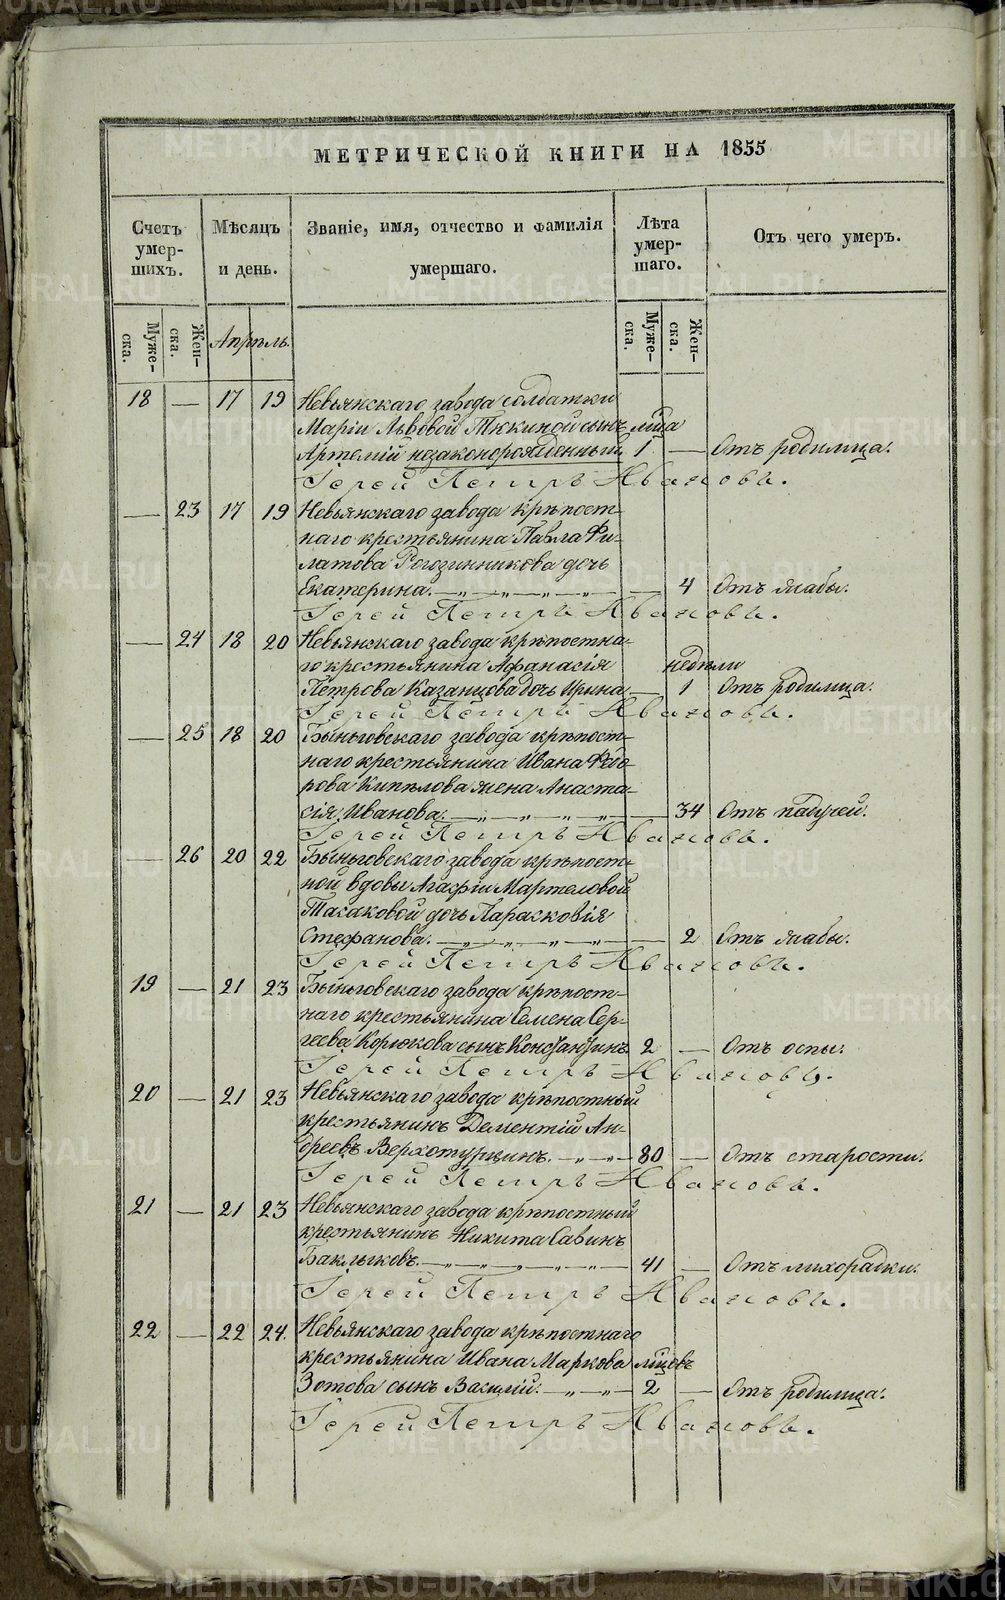 МЕТРИЧЕСКОЙ КНИГИ НА 1855
Счетъ умер-шихъ.
Мѣсяцъ и день.
Званіе, имя, отчество и фамилія умершаго.
Лѣта умер-шаго.
Отъ чего умеръ.
Муже-ска.
Жен-ска.
Апрѣль.
Муже-ска.
Жен-ска.
18 — 17 19 Невьянскаго завода солдатки
Маріи Львовой Тюкиной сынъ
Артемій незаконорожденный 1 — Отъ родимца.
Іерей Петръ Ивановъ.
— 23 17 19 Невьянскаго завода крѣпост-
наго крестьянина Павла Фи-
латова Рогозинникова дочь
Екатерина. — „ — „ — „ — „ — 4 Отъ жабы.
Іерей Петръ Ивановъ.
— 24 18 20 Невьянскаго завода крѣпостна-
го крестьянина Афанасія недѣли
Петрова Казанцова дочь Ирина — 1 Отъ родимца.
Іерей Петръ Ивановъ.
— 25 18 20 Быньговскаго завода крѣпост-
наго крестьянина Ивана Ѳедо-
рова Кипѣлова жена Анаста-
сія Иванова. — „ — „ — „ — „ — 34 Отъ падучей.
Іерей Петръ Ивановъ.
— 26 20 22 Быньговскаго завода крѣпост-
ной вдовы Агафіи Мартеловой
Тасаковой дочь Парасковія
Стефанова. — „ — „ — „ — „ — 2 Отъ жабы.
Іерей Петръ Ивановъ.
19 — 21 23 Быньговскаго завода крѣпост-
наго крестьянина Семена Сер-
геева Корюкова сынъ Константинъ 2 — Отъ оспы.
Іерей Петръ Ивановъ.
20 — 21 23 Невьянскаго завода крѣпостный
крестьянинъ Дементій Ан-
дреевъ Верхотурцинъ. — „ — „ — 80 — Отъ старости.
Іерей Петръ Ивановъ.
21 — 21 23 Невьянскаго завода крѣпостный
крестьянинъ Никита Савинъ
Баклыковъ. — „ — „ — „ — „ — „ — 41 — Отъ лихорадки.
Іерей Петръ Ивановъ.
22 — 22 24. Невьянскаго завода крѣпостнаго
крестьянина Ивана Маркова
Зотова сынъ Василій. — „ — „ — 2 — Отъ родимца.
Іерей Петръ Ивановъ.
METRIKI.GASO-URAL.RU